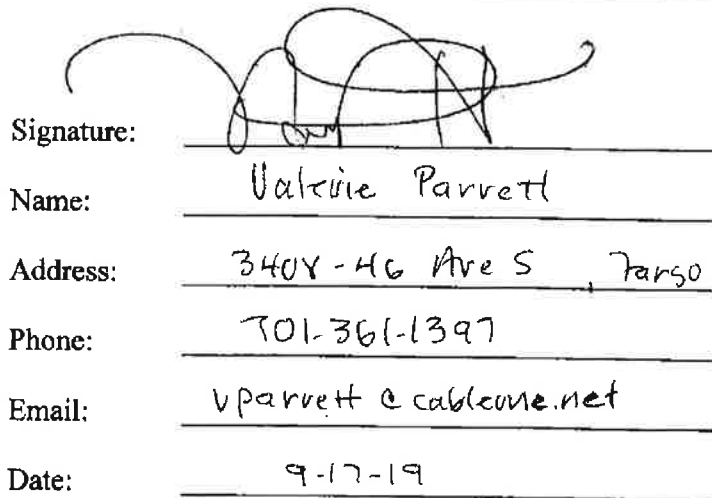 Signature:
Name: Valerie Parrett
Address: 3408-46 Ave S, Fargo
Phone: 701-361-1397
Email: vparrett@cableone.net
Date: 9-17-19